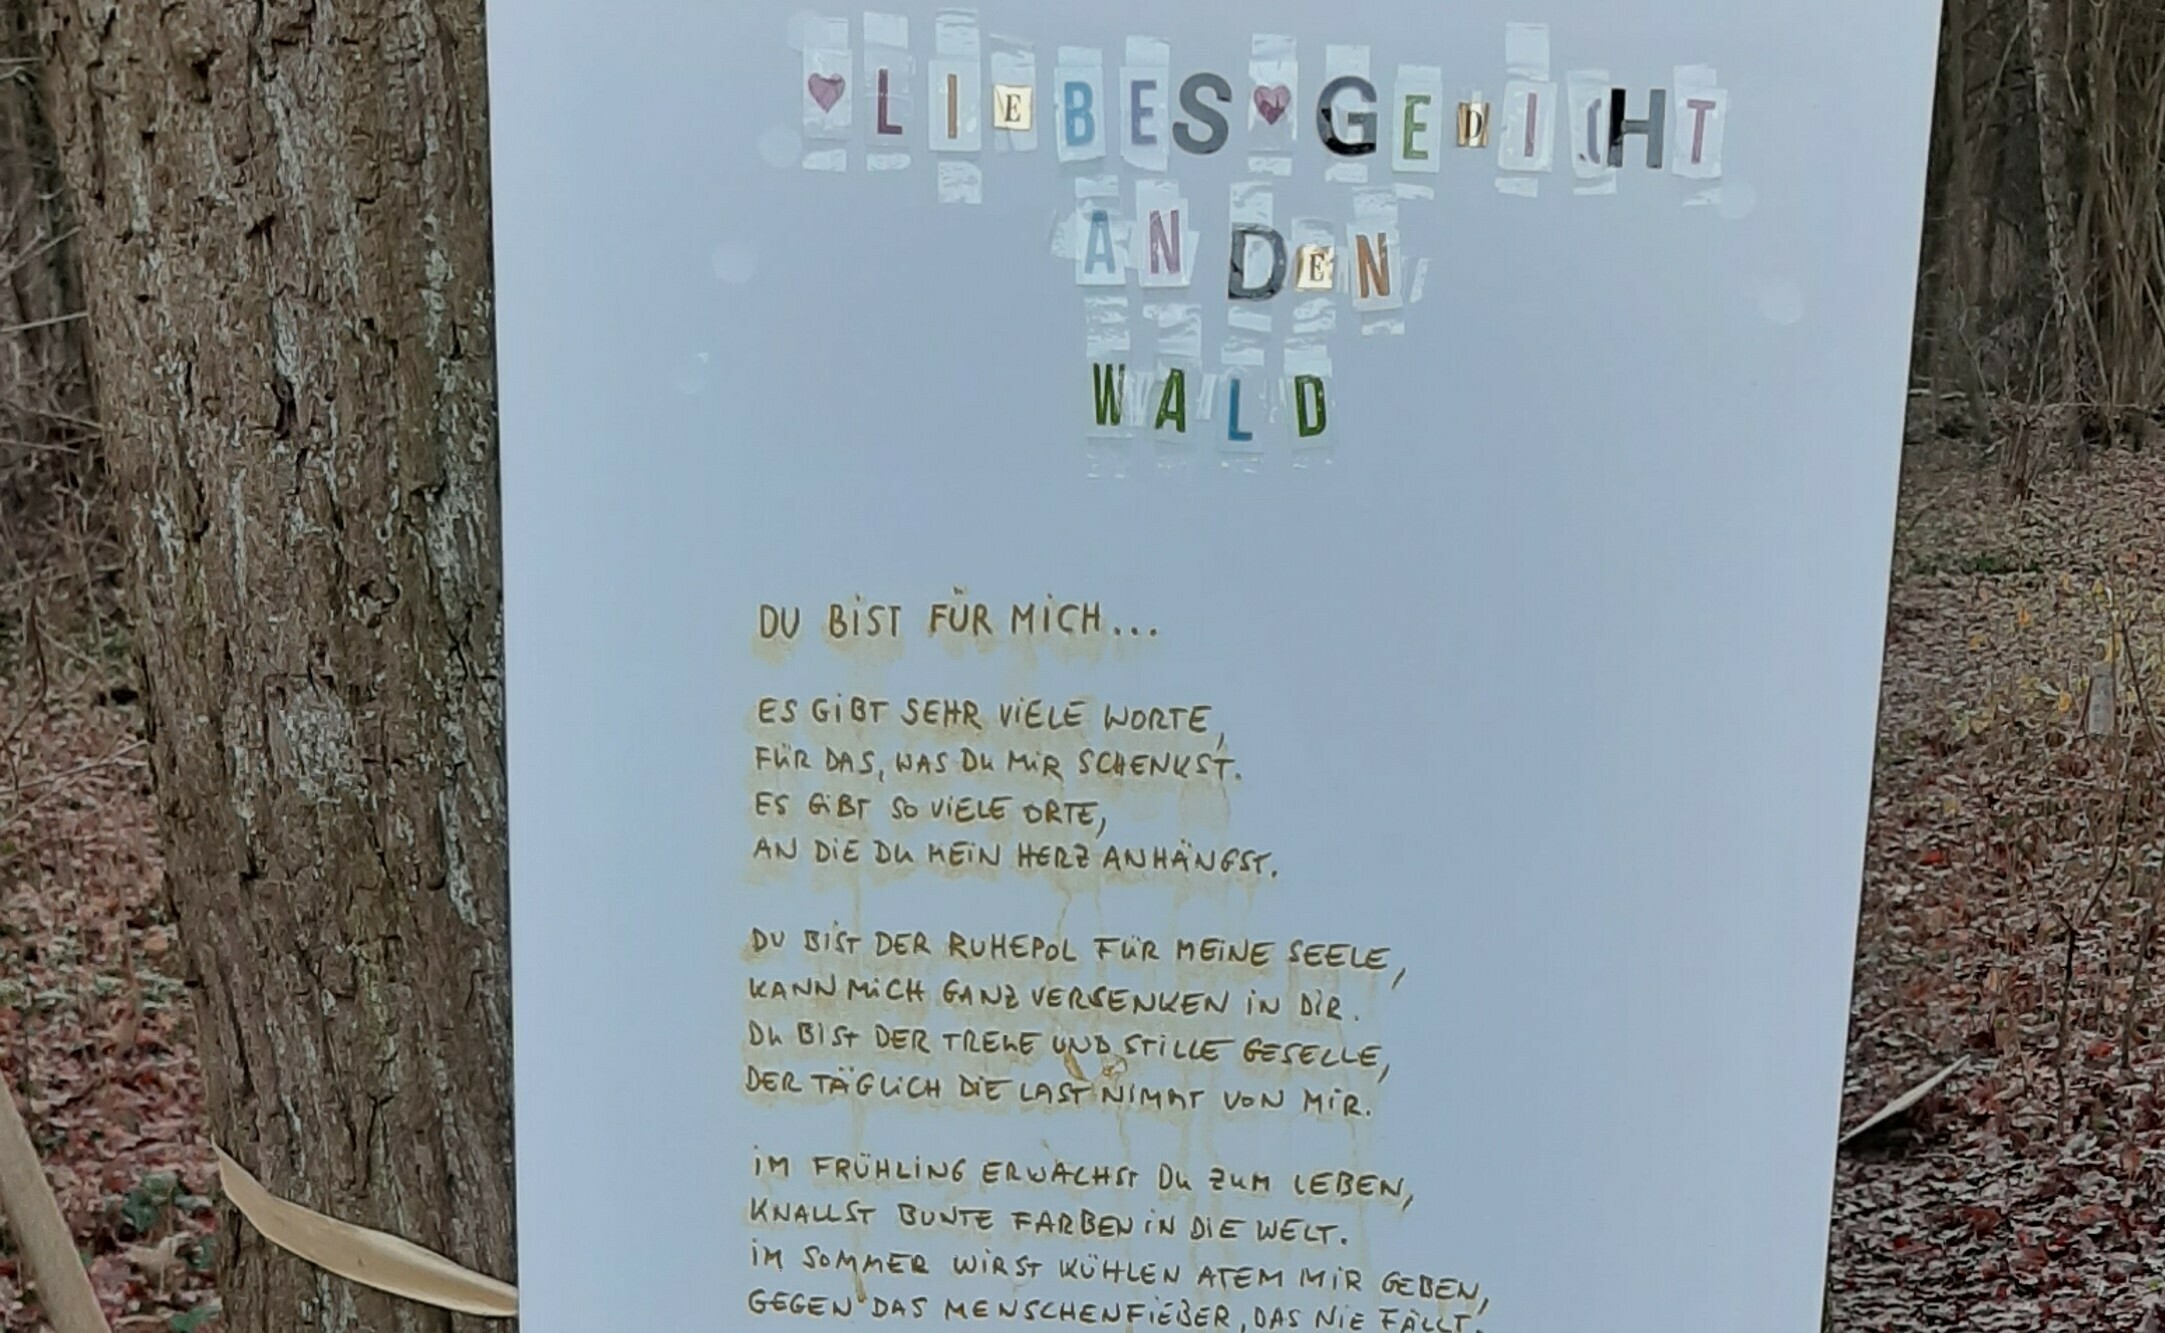 ♥LIEBES♥GEDICHT
AN DEN
WALD
DU BIST FÜR MICH...
ES GIBT SEHR VIELE WORTE,
FÜR DAS, WAS DU MIR SCHENKST.
ES GIBT SO VIELE ORTE,
AN DIE DU MEIN HERZ ANHÄNGST.
DU BIST DER RUHEPOL FÜR MEINE SEELE,
KANN MICH GANZ VERSENKEN IN DIR.
DU BIST DER TREUE UND STILLE GESELLE,
DER TÄGLICH DIE LAST NIMMT VON MIR.
IM FRÜHLING ERWACHST DU ZUM LEBEN,
KNALLST BUNTE FARBEN IN DIE WELT.
IM SOMMER WIRST KÜHLEN ATEM MIR GEBEN,
GEGEN DAS MENSCHENFIEBER, DAS NIE FÄLLT.